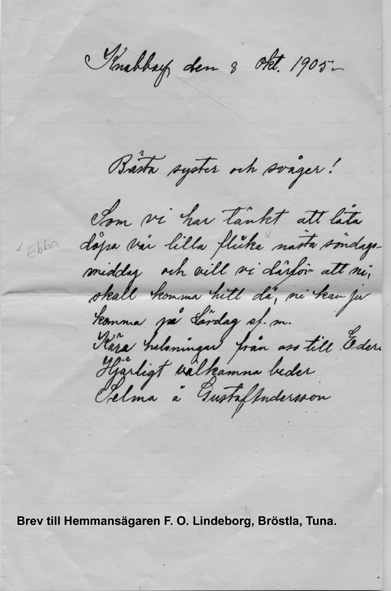 Knabbarf den 8 okt. 1905 –
Bästa syster och svåger!
Som vi har tänkt att låta
döpa vår lilla flicka x nästa söndags-
Ebba
middag och vill vi därför att ni,
skall komma hitt då, ni kan ju
komma på Lördag ef. m.
Kära halsningar från oss till Eder.
Hjärligt välkamna beder
Selma å Gustaf Andersson
Brev till Hemmansägaren F. O. Lindeborg, Bröstla, Tuna.